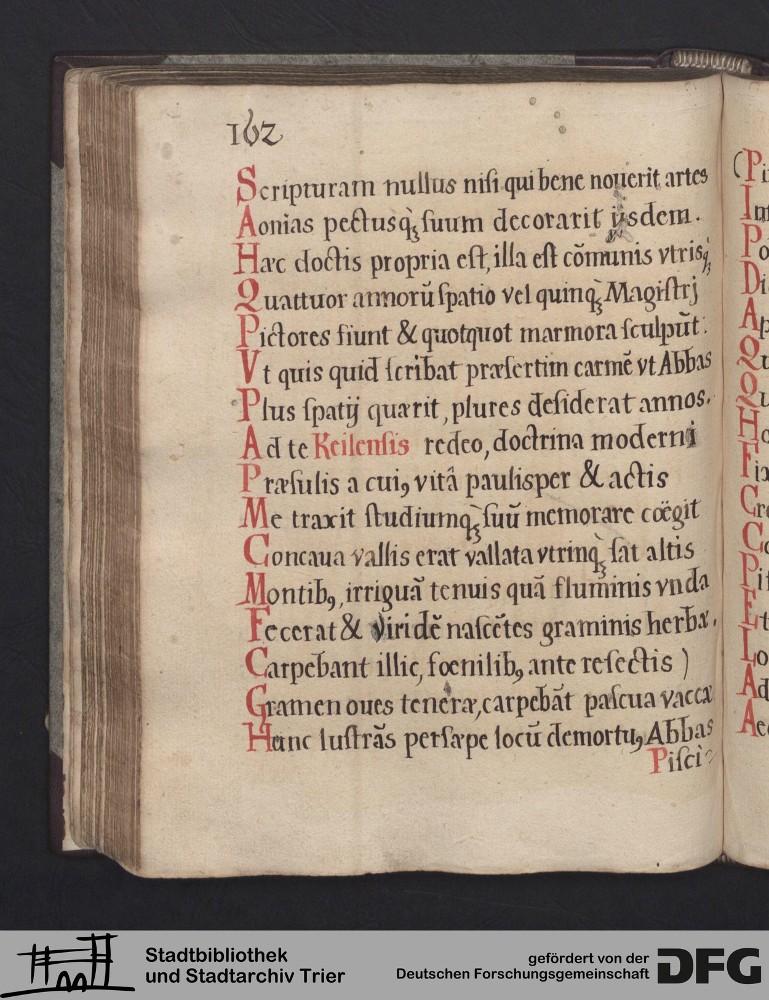 162
Scripturam nullus nisi qui bene nouerit artes
Aonias pectusq́ꝫ suum decorarit ijsdem.
Hæc doctis propria est, illa est cōmunis vtrisq́ꝫ
Quattuor annorū spatio vel quinq́ꝫ Magistrj
Pictores fiunt & quotquot marmora sculpūt:
Vt quis quid scribat præsertim carmē vt Abbas
Plus spatij quærit, plures desiderat annos.
Ad te Keilensis redeo, doctrina moderni
Præsulis a cuiꝰ vitâ paulisper & actis
Me traxit studiumq́ꝫ suū memorare coëgit
Concaua vallis erat vallata vtrinq́ꝫ sat altis
Montibꝰ, irriguā tenuis quā fluminis vnda
Fecerat & viridē nascētes graminis herbæ.
Carpebant illic, fœnilibꝰ ante resectis )
Gramen oues teneræ, carpebāt pascua vaccæ
Hanc lustrās persæpe locū demortuꝰ Abbas
Pisci-
(Pi
Im
Po
Di
Ap
Qu
Qu
Ho
Fix
Cre
Co
Pis
Et
Lo
Ad
Aed
Stadtbibliothek
und Stadtarchiv Trier
gefördert von der
Deutschen Forschungsgemeinschaft
DFG